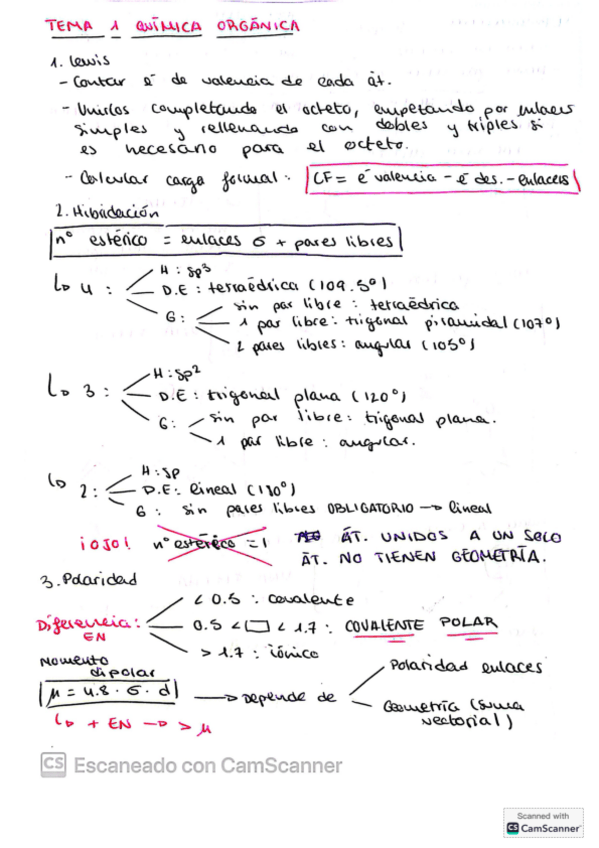 TEMA 1 QUÍMICA ORGÁNICA
1. Lewis
- Contar e⁻ de valencia de cada át.
- Unirlos completando el octeto, empezando por enlaces
simples y rellenando con dobles y triples si
es necesario para el octeto.
- Calcular carga formal: CF = e⁻ valencia - e⁻ des. - enlaces
2. Hibridación
nº estérico = enlaces σ + pares libres
↳ 4 :
H : sp³
D.E : tetraédrica (109.5º)
G :
sin par libre : tetraédrica
1 par libre : trigonal piramidal (107º)
2 pares libres : angular (105º)
↳ 3 :
H : sp²
D.E : trigonal plana (120º)
G :
sin par libre : trigonal plana.
1 par libre : angular.
↳ 2 :
H : sp
D.E : lineal (180º)
G : sin pares libres OBLIGATORIO → lineal
¡OJO! nº estérico = 1 ÁT. UNIDOS A UN SOLO
ÁT. NO TIENEN GEOMETRÍA.
3. Polaridad
Diferencia :
EN
< 0.5 : covalente
0.5 < □ < 1.7 : COVALENTE POLAR
> 1.7 : iónico
Momento
dipolar
μ = 4.8 · σ · d → Depende de
Polaridad enlaces
Geometría (suma
vectorial)
↳ + EN → > μ
CS Escaneado con CamScanner
Scanned with
CS CamScanner